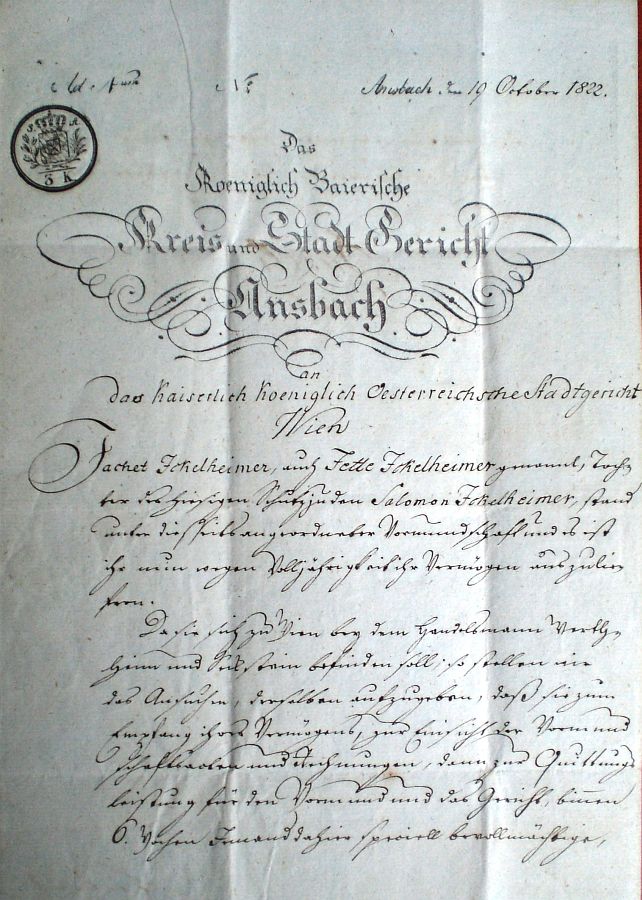 Ansbach den 19 October 1822.
3 K
Das
Koeniglich Baierische
Kreis und Stadt Gericht
Ansbach
an
das Kaiserlich Koeniglich Oesterreichsche Stadtgericht
Wien
Jachet Ickelheimer, auch Jette Ickelheimer genannt, Toch-
ter des hiesigen Schutzjuden Salomon Ickelheimer, stand
unter diesseits angeordneter Vormundschaft und es ist
ihr nun wegen Volljährigkeit ihr Vermögen auszulie-
fern.
Da sie sich zu Wien bey dem Handelsmann Werth-
heim und befinden soll; so stellen wir
das Ansuchen, derselben aufzugeben, daß sie zum
Empfang ihres Vermögens, zur Einsicht der Vormund-
schaftsacten und Rechnungen, dann zur Quittungs-
leistung für den Vormund und das Gericht, binnen
6. Wochen Jemand dahier speciell bevollmächtige,